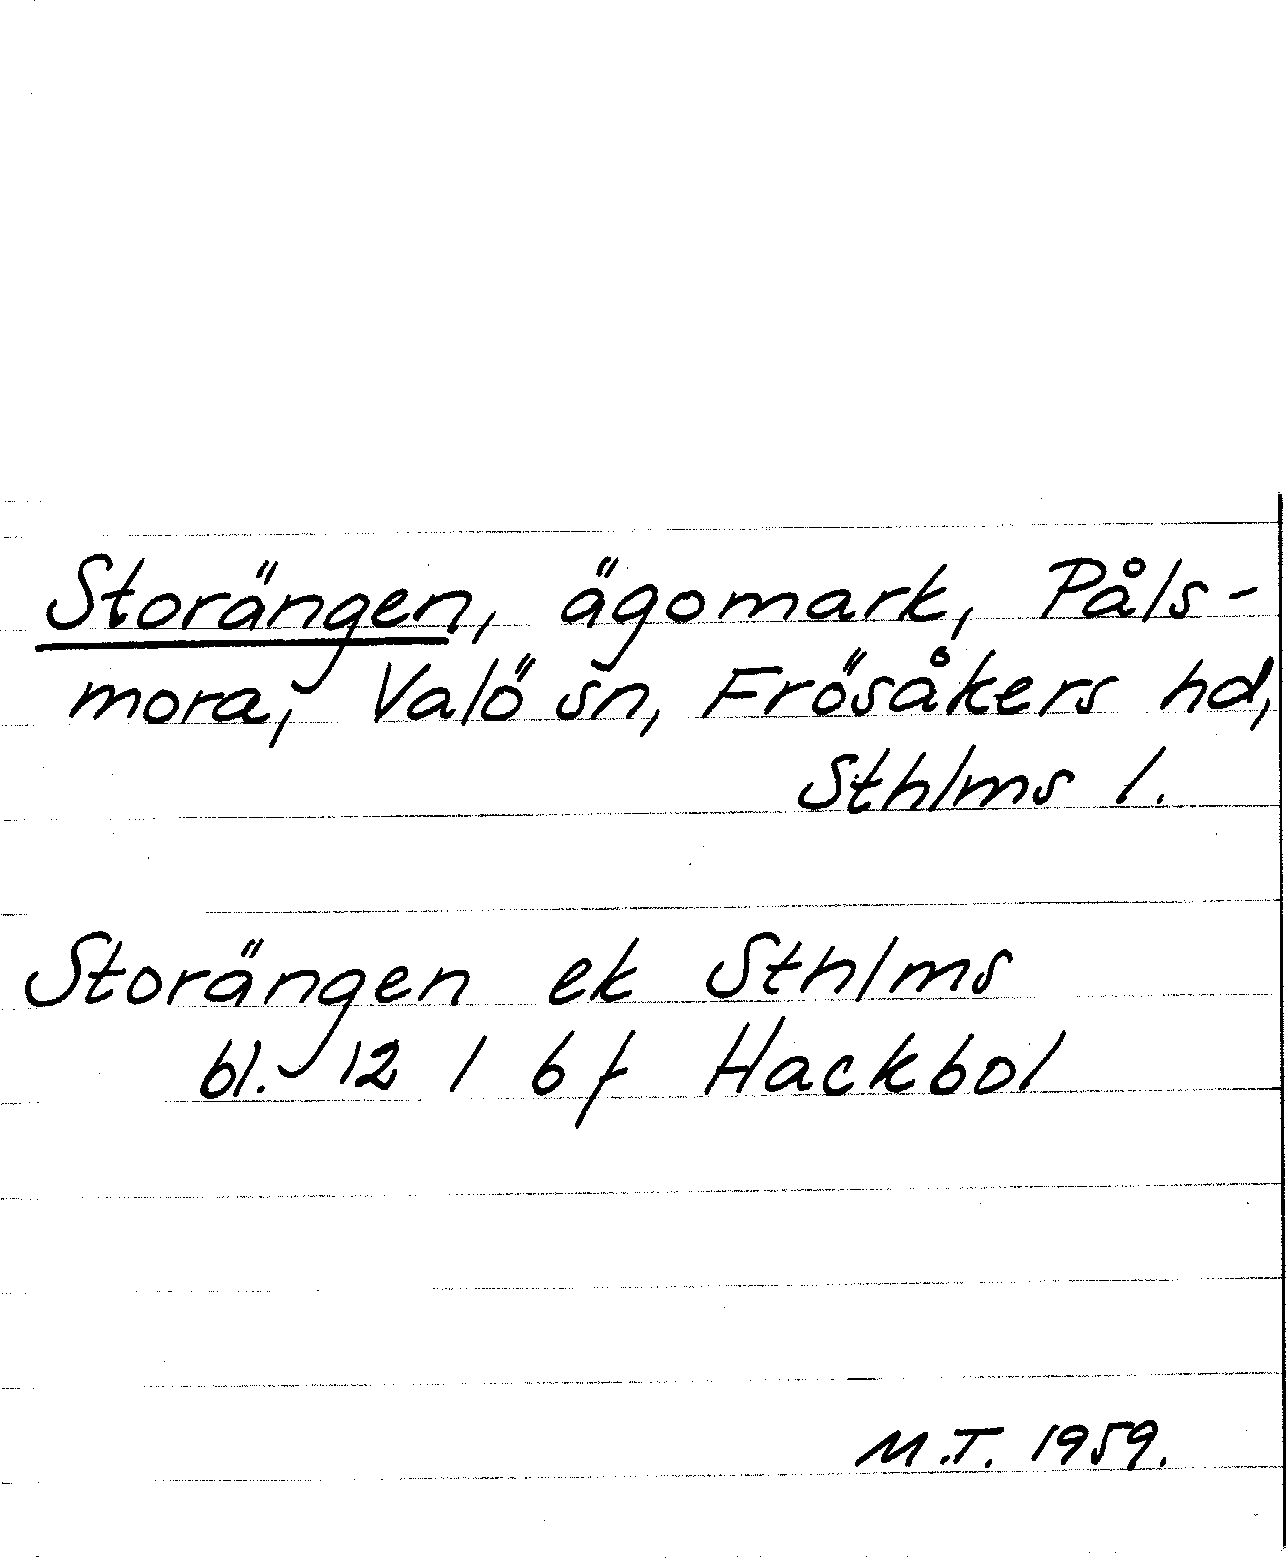 Storängen, ägomark, Påls-
mora, Valö sn, Frösåkers hd,
Sthlms l.
Storängen ek Sthlms
bl. 12 1 b f Hackbol
M.T. 1959.